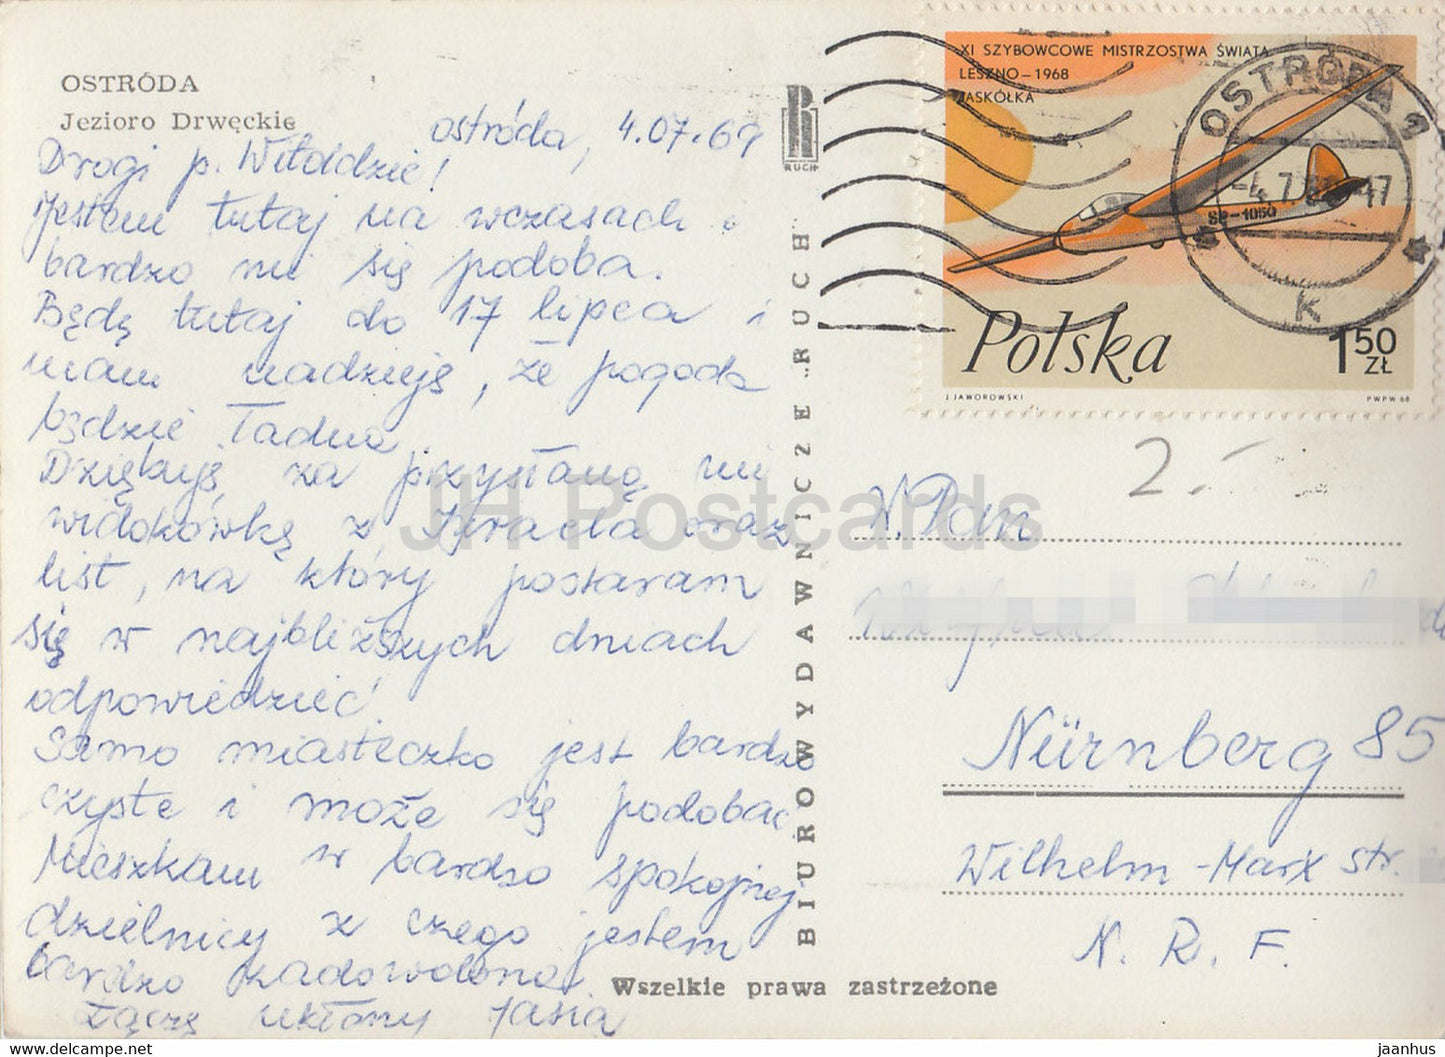 OSTRÓDA
Jezioro Drwęckie
ostróda, 4.07.69
Drogi p. Witoldzie!
Jestem tutaj na wczasach i
bardzo mi się podoba.
Będę tutaj do 17 lipca i
mam nadzieję, że pogoda
będzie ładna.
Dziękuję za przysłaną mi
widokówkę z Izraela oraz
list, na który postaram
się w najbliższych dniach
odpowiedzieć.
Samo miasteczko jest bardzo
czyste i może się podobać
Mieszkam w bardzo spokojnej
dzielnicy z czego jestem
bardzo zadowolona.
Łączę ukłony Jasia
Wszelkie prawa zastrzeżone
RUCH
BIURO WYDAWNICZE „RUCH"
XI SZYBOWCOWE MISTRZOSTWA ŚWIATA
LESZNO-1968
JASKÓŁKA
SP-1050
Polska
1 50 ZŁ
J. JAWOROWSKI
PWPW 68
OSTRÓDA 1
-4.7. 17
k
2.-
W. Pan
Nürnberg 85
Wilhelm-Marx str.
N. R. F.
JH Postcards
https://www.delcampe.net
jaanhus